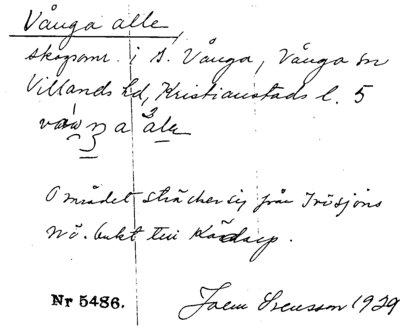 Vånga alle,
skogsomr. i S. Vånga, Vånga sn
Villands hd, Kristianstads l. 5
Området sträcker sig från Ivösjöns
nö. bukt till
Nr 5486. Svensson 1929